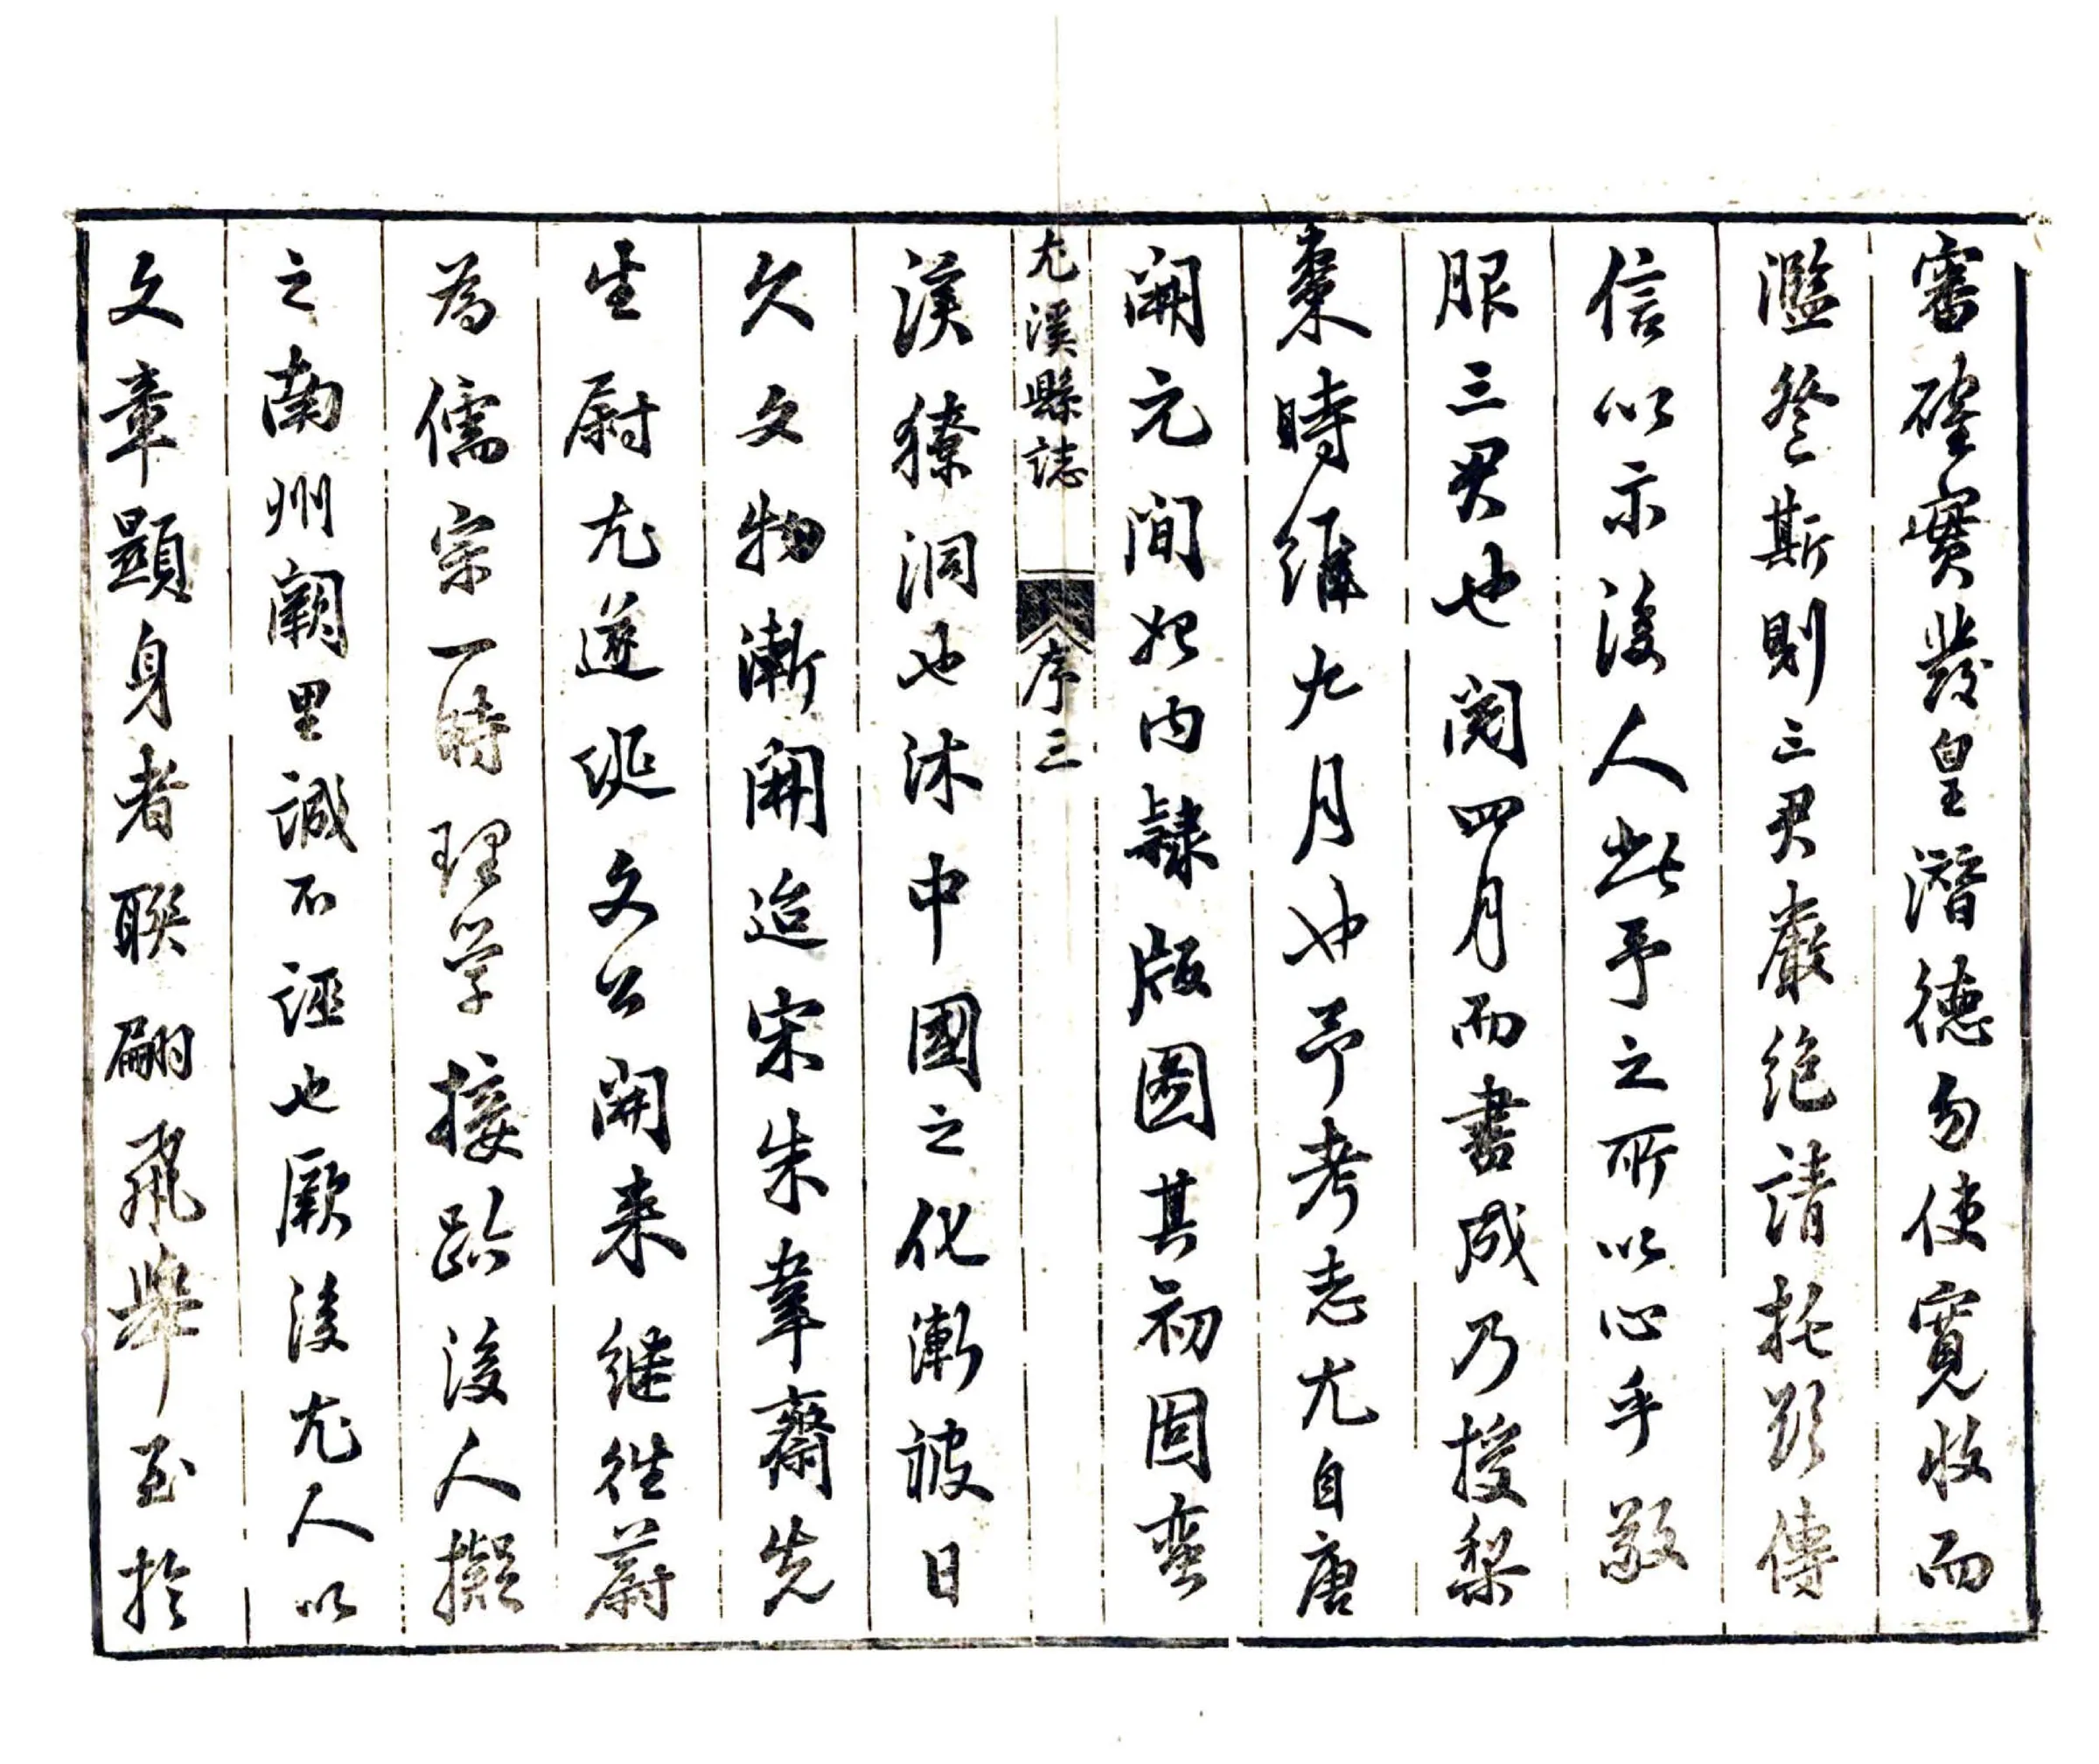 審確實發皇潛德勿使寬收而
濫登斯則三君嚴絕請托彰傳
信以示後人此予之所以心乎敬
服三君也閱四月而書成乃授梨
棗時維九月也予考志尤自唐
開元間始內隸版圖其初固蛮
尤溪縣誌
序三
溪獠洞也沐中國之化漸被日
久文物漸開迨宋朱韋齋先
生尉尤遂誕文公開来継徃蔚
為儒宗一時理学接跡後人擬
之南州闕里誠不誣也厥後尤人以
文章顯身者聯翩飛舉至於